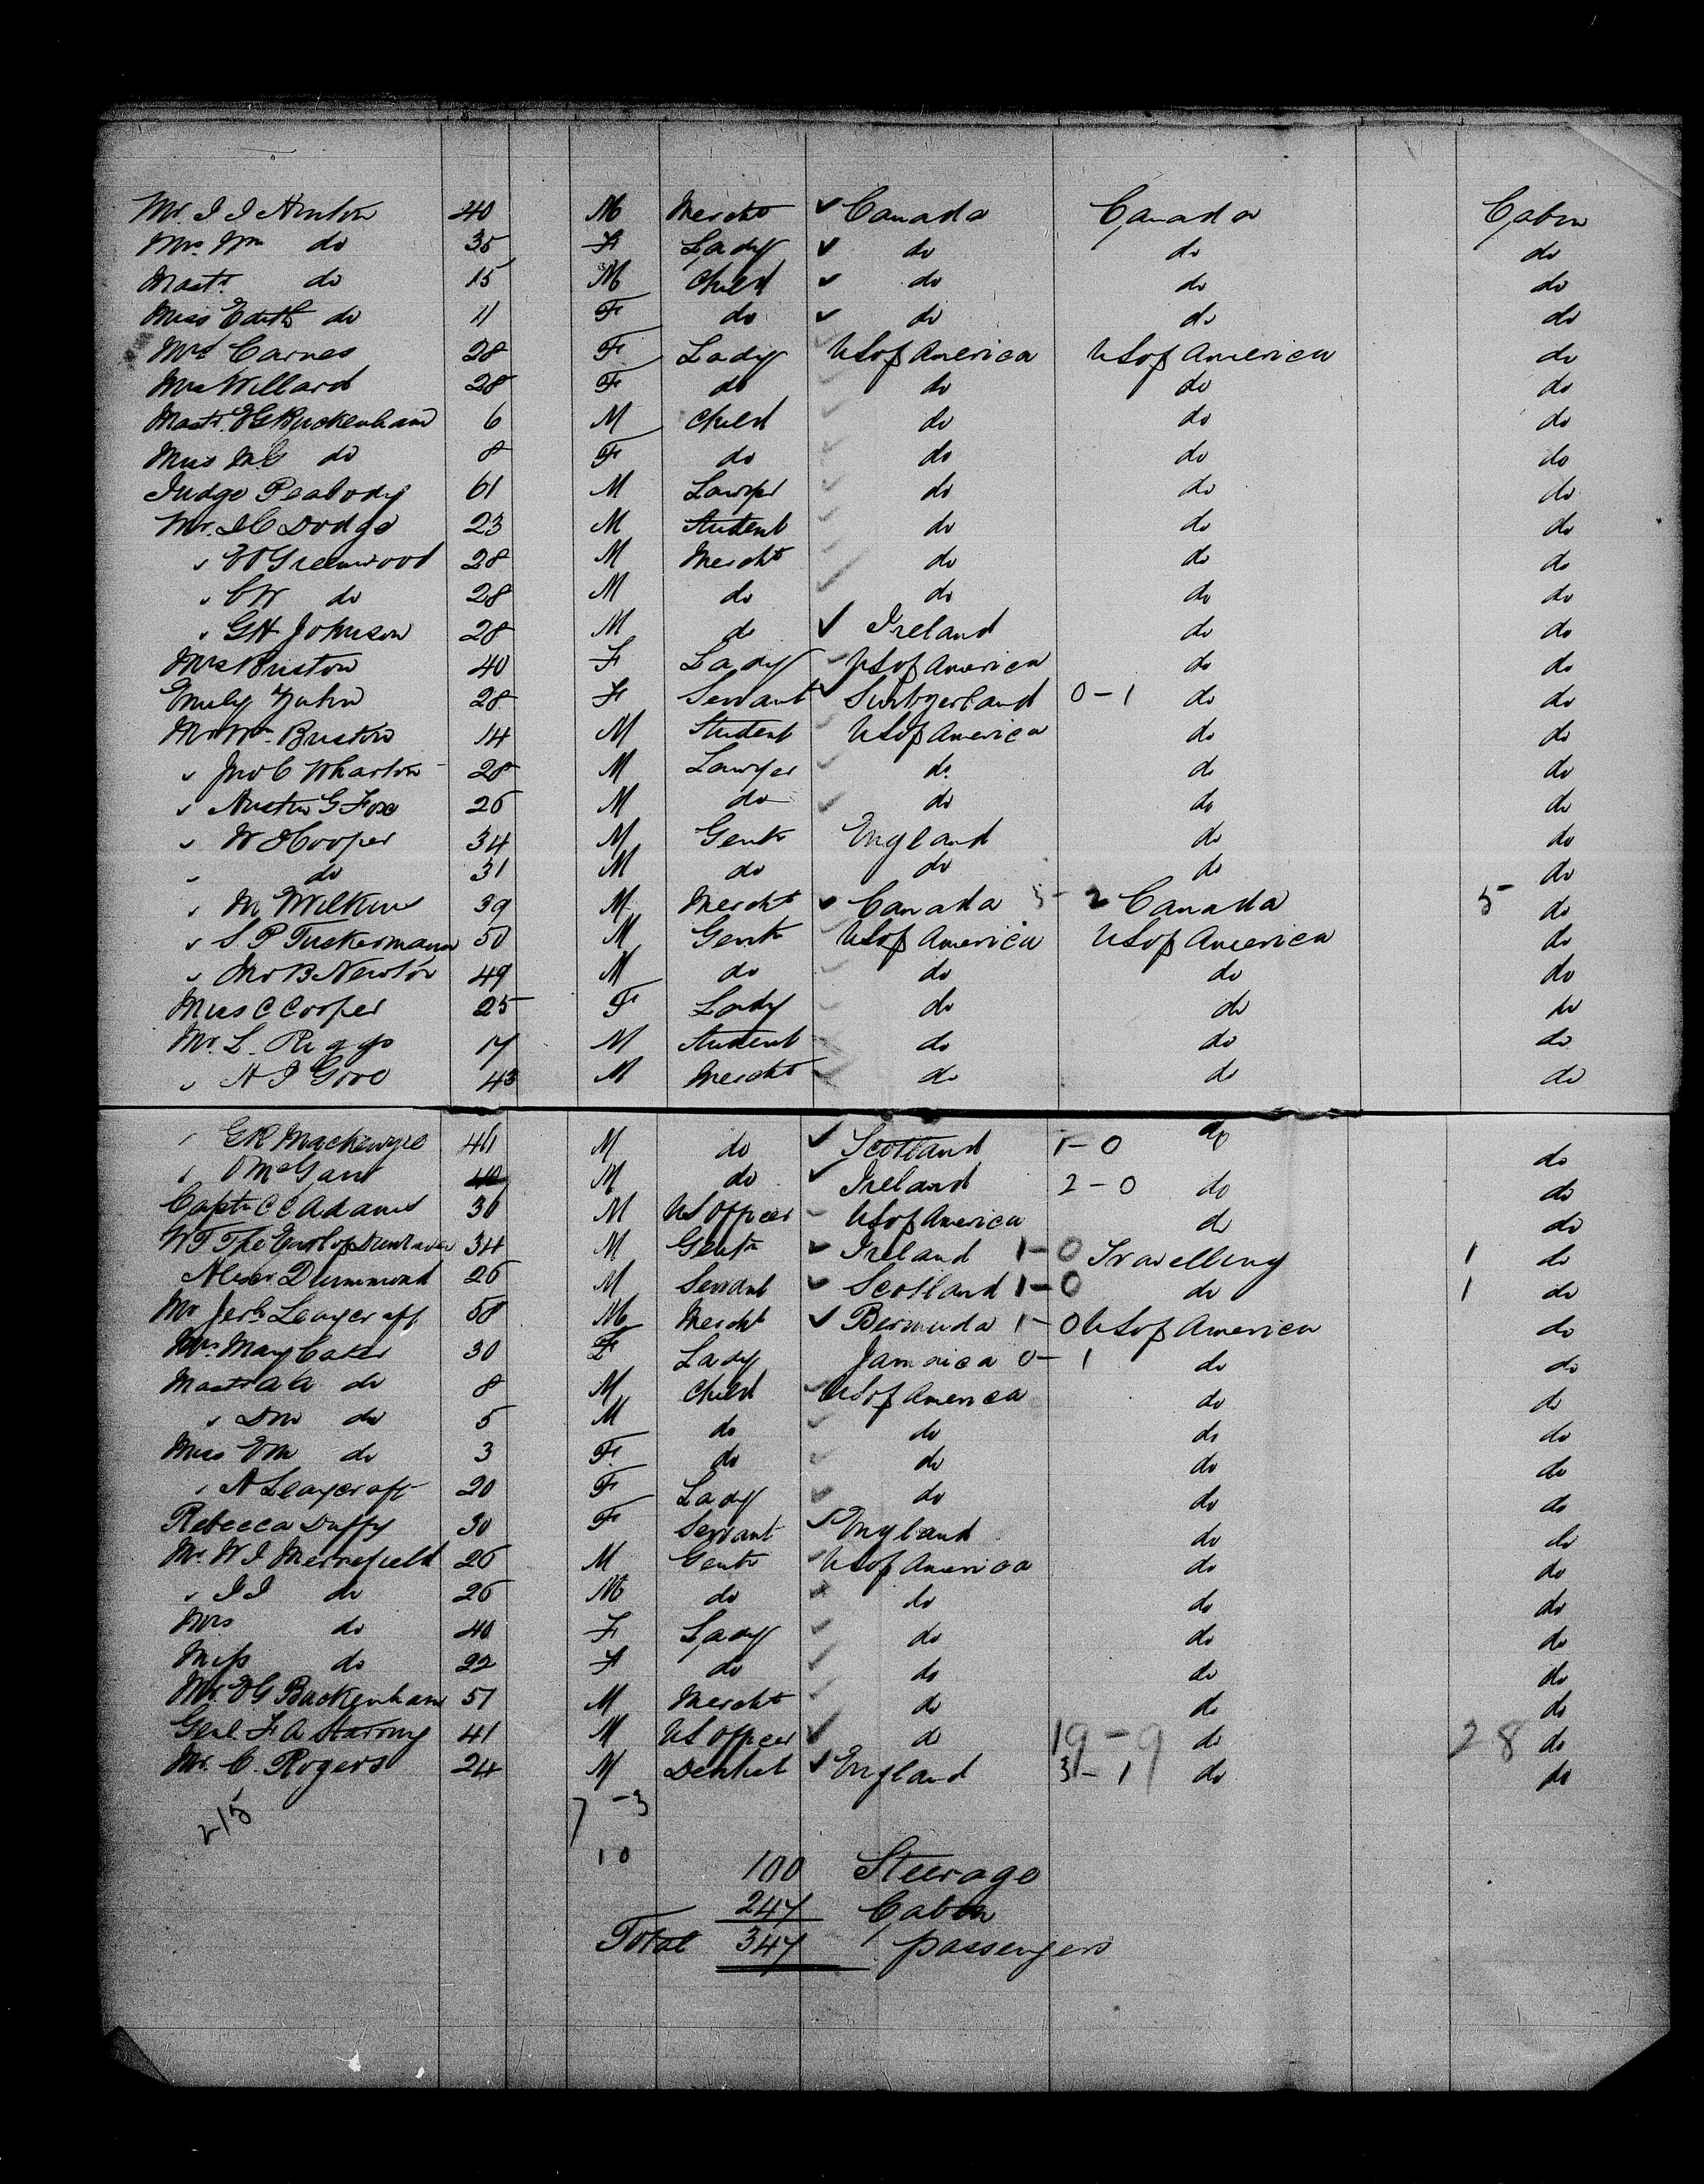 Mr. J J Hinton 40 M Mercht Canada Canada Cabin
Mrs. Wm do 35 F Lady do do do
Mastr. do 15 M Child do do do
Miss Edith do 11 F do do do do
Mrs Carnes 28 F Lady US of America US of America do
Mrs Willard 28 F do do do do
Mastr. EG Buckenham 6 M Child do do do
Miss M.G do 8 F do do do do
Judge Peabody 61 M Lawyer do do do
Mr. D C Dodge 23 M Student do do do
" Greenwood 28 M Mercht do do do
" CW do 28 M do do do do
" GH Johnson 28 M do Ireland do do
Mrs Buxton 40 F Lady US of America do do
Emily Zahn 28 F Servant Switzerland 0-1 do do
Mr Wm. Buxton 14 M Student US of America do do
" Jno C Wharton 28 M Lawyer do do do
" Austin G Fox 26 M do do do do
" W Cooper 34 M Gentn England do do
" do 31 M do do do do
" M Wilkins 39 M Mercht Canada 3-2 Canada 5 do
" S P Tuckermann 50 M Gentn US of America US of America do
" Jno B Newton 49 M do do do do
Miss C Cooper 25 F Lady do do do
Mr. L. Riggs 17 M Student do do do
" A J Gove 43 M Mercht do do do
" GR Mackenzie 41 M do Scotland 1-0 do do
" McGant 40 M do Ireland 2-0 do do
Captn C C Adams 36 M US Officer US of America do do
WT The Earl of Dunraven 34 M Gentn Ireland 1-0 Travelling 1 do
Alexr Drummond 26 M Servant Scotland 1-0 do 1 do
Mr Jerh. Leaycraft 58 M Mercht Bermuda 1-0 US of America do
Mrs. Mary Cater 30 F Lady Jamaica 0-1 do do
Mastr A A do 8 M Child US of America do do
" DM do 5 M do do do do
Miss EM do 3 F do do do do
" A Leaycraft 20 F Lady do do do
Rebecca Duffy 30 F Servant England do do
Mr. W J Merrefield 26 M Gentn US of America do do
" J J do 26 M do do do do
Mrs do 40 F Lady do do do
Miss do 22 F do do do do
Mr. EG Buckenham 51 M Mercht do do do
Genl. F A Starring 41 M US Officer do 19-9 do 28 do
Mr. C. Rogers 24 M Dentist England 3-1 do do
215
7-3
10
100 Steerage
247 Cabin
Total 347 passengers